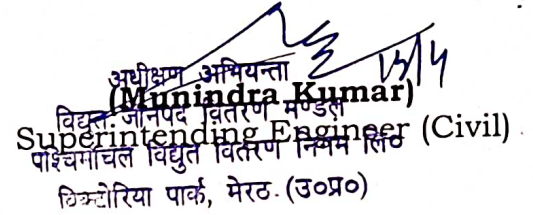 13/4
अधीक्षण अभियन्ता
(Munindra Kumar)
विद्युत जानपद वितरण मण्डल
Superintending Engineer (Civil)
पश्चिमांचल विद्युत वितरण निगम लि०
विक्टोरिया पार्क, मेरठ. (उ०प्र०)